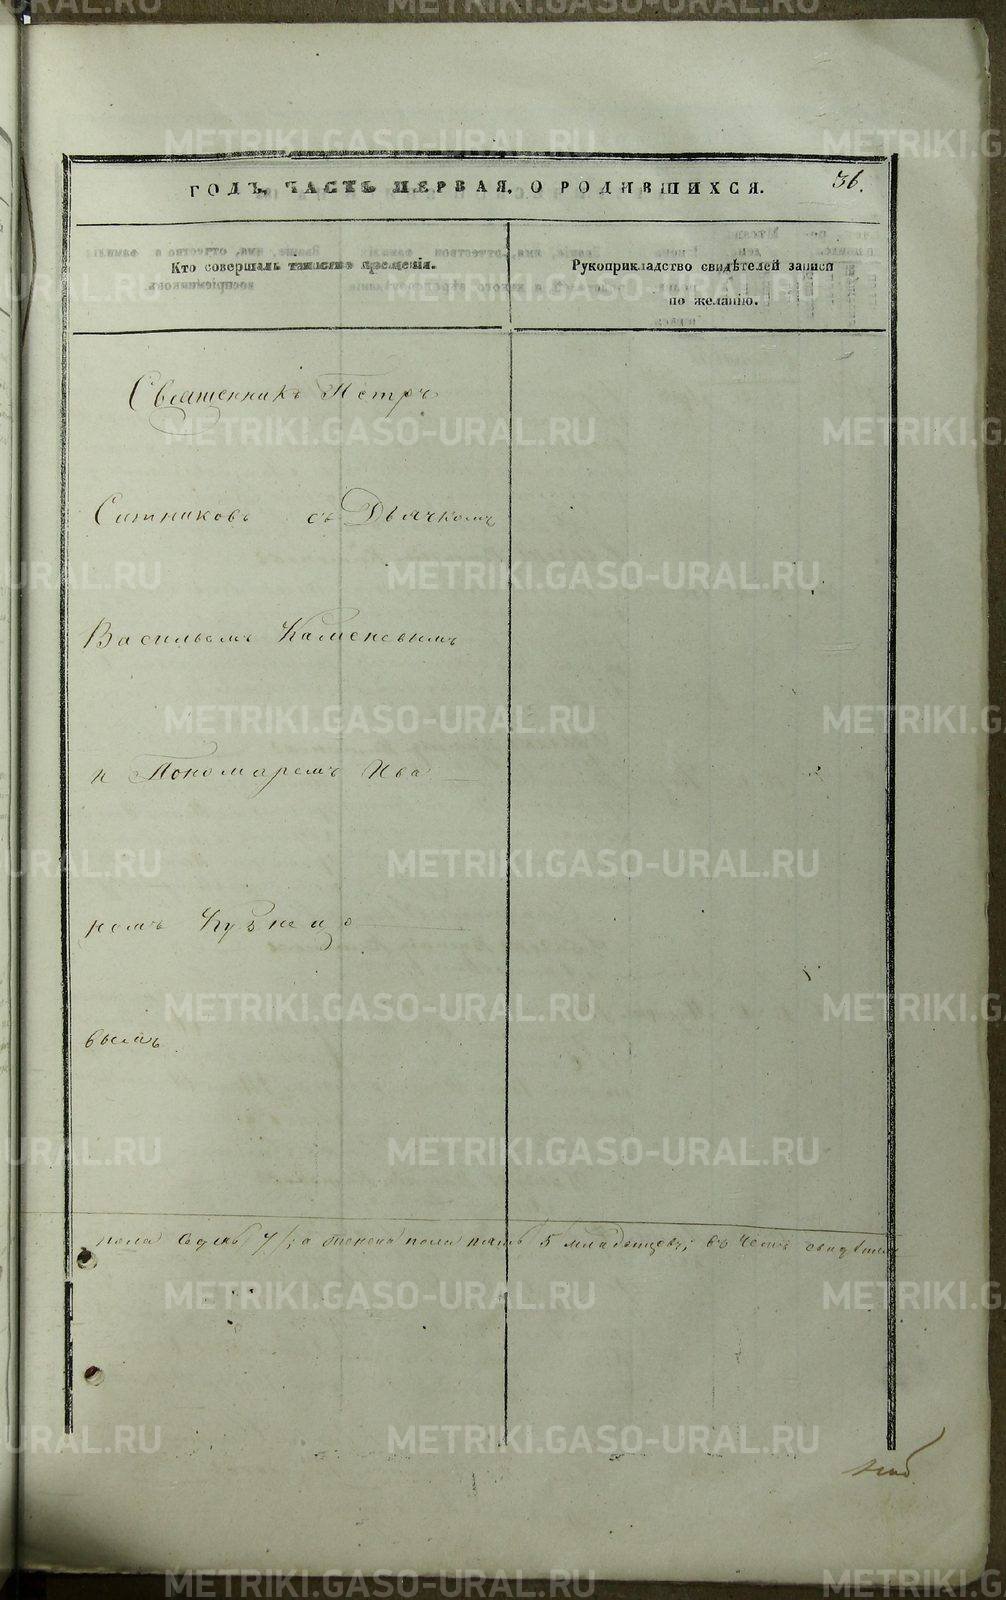 ГОДЪ, ЧАСТЬ ПЕРВАЯ, О РОДИВШИХСЯ.
36.
Кто совершалъ таинство крещенія.
Рукоприкладство свидѣтелей записи
по желанію.
Священникъ Петръ
Ситниковъ съ Дьячкомъ
Васильемъ Каменевымъ
и Пономаремъ Ива
номъ Кузнецо
вымъ
пола седмь 7; а женска пола пять 5 младенцевъ; въ чемъ свидѣтель
METRIKI.GASO-URAL.RU